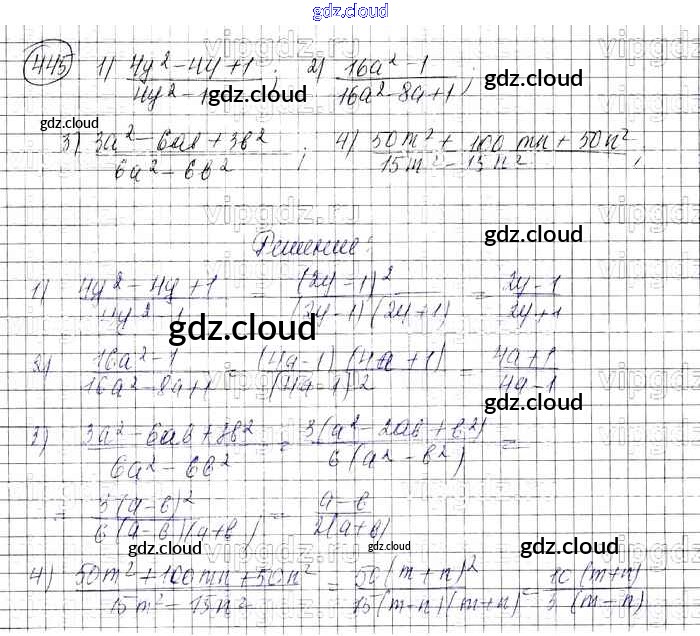 gdz.cloud
445 1) (4y² - 4y + 1)/(4y² - 1); 2) (16a² - 1)/(16a² - 8a + 1);
gdz.cloud gdz.cloud
gdz.cloud
3) (3a² - 6ab + 3b²)/(6a² - 6b²); 4) (50m² + 100mn + 50n²)/(15m² - 15n²);
vipgdz.ru
Решение: gdz.cloud
1) (4y² - 4y + 1)/(4y² - 1) = (2y - 1)²/((2y - 1)(2y + 1)) = (2y - 1)/(2y + 1)
gdz.cloud
2) (16a² - 1)/(16a² - 8a + 1) = ((4a - 1)(4a + 1))/(4a - 1)² = (4a + 1)/(4a - 1)
gdz.cloud
3) (3a² - 6ab + 3b²)/(6a² - 6b²) = 3(a² - 2ab + b²)/(6(a² - b²)) =
= 3(a - b)²/(6(a - b)(a + b)) = (a - b)/(2(a + b))
gdz.cloud gdz.cloud gdz.cloud
4) (50m² + 100mn + 50n²)/(15m² - 15n²) = 50(m + n)²/(15(m - n)(m + n)) = 10(m + n)/(3(m - n))